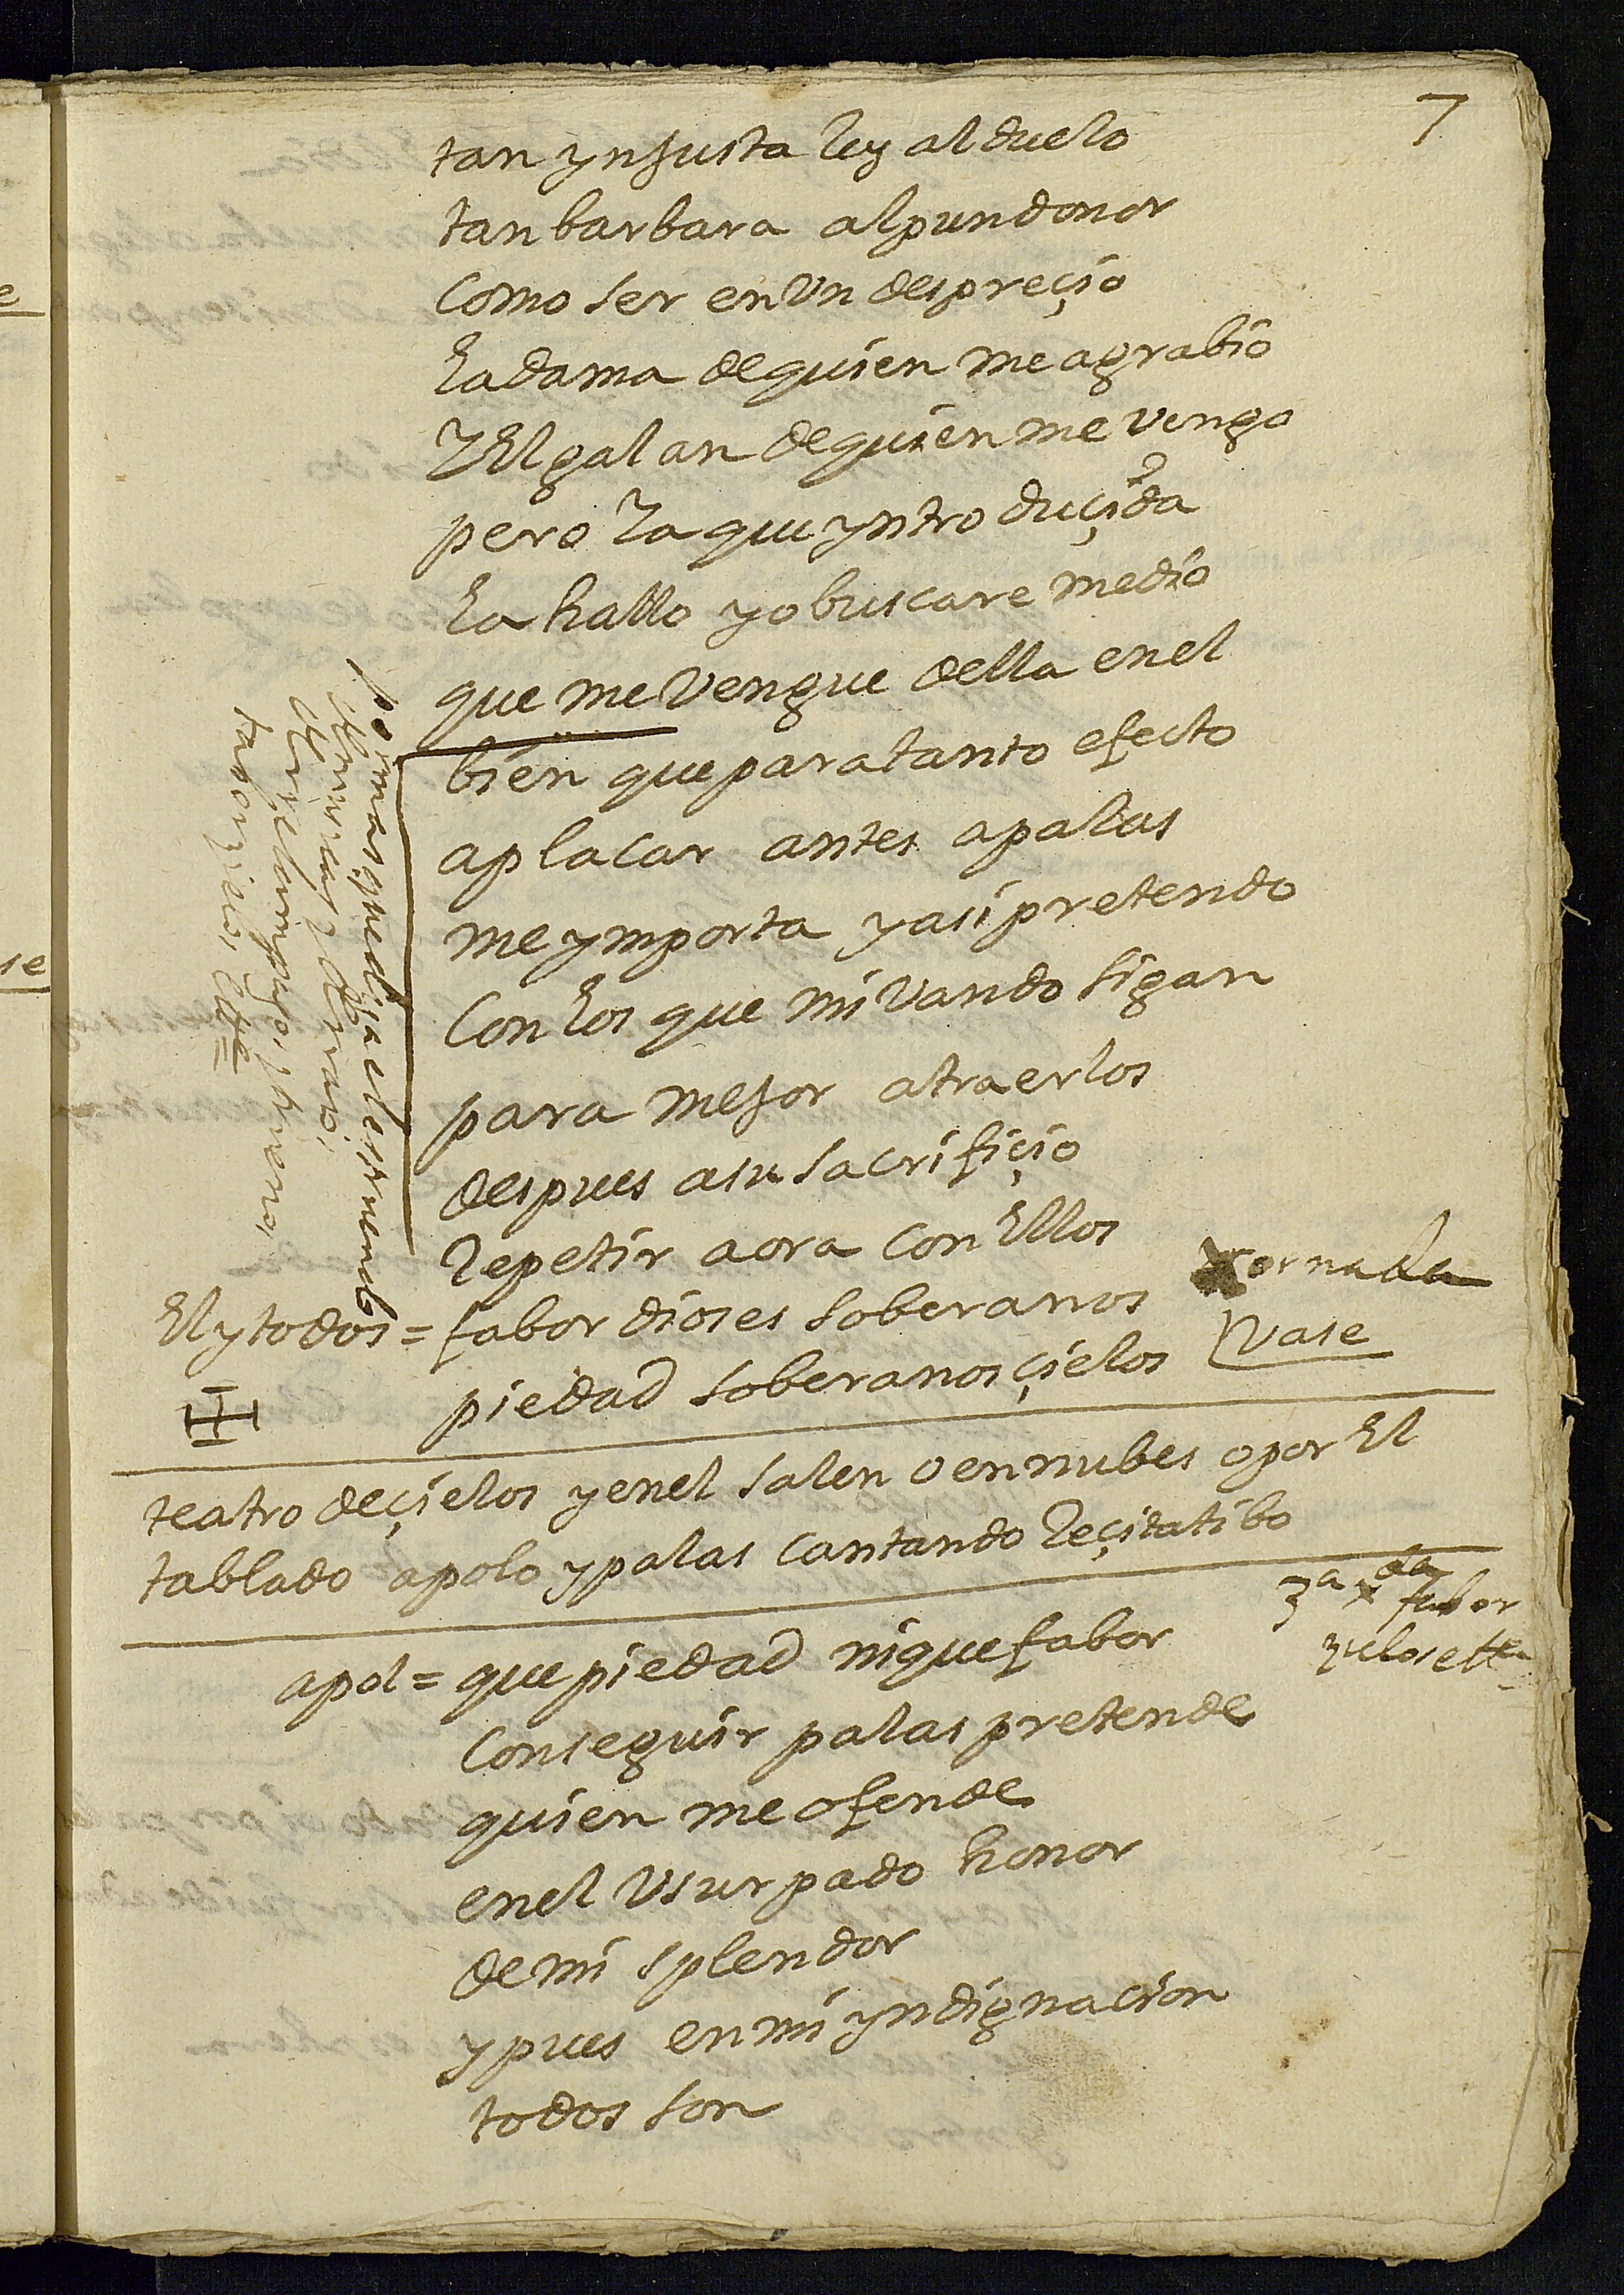 7
tan ynJusta ley al duelo
tan barbara al pundonor
como ser en Vn despreçio
la dama de quien me agrabio
Y El galan de quien me vengo
pero ya que yntroduçida
la hallo yo buscare medio
que me Vengue della en el
bien que para tanto efecto
aplacar antes a palas
me ymporta y asi pretendo
con los que mi Vando sigan
para meJor atraerlos
despues a su sacrifiçio
Repetir aora con Ellos
El y todos = fabor dioses soberanos
piedad soberanos çielos
Xornada
Vase
por mas que diga el estruendo
teatro de çielos y en el salen o en nubes o por El
tablado apolo y palas cantando Reçitatibo
3ª xda
fabor
zielos ettª
apol = que piedad ni que fabor
conseguir palas pretende
quien me ofende
en el Vsurpado honor
de mi splendor
y pues en mi yndignacion
todos son